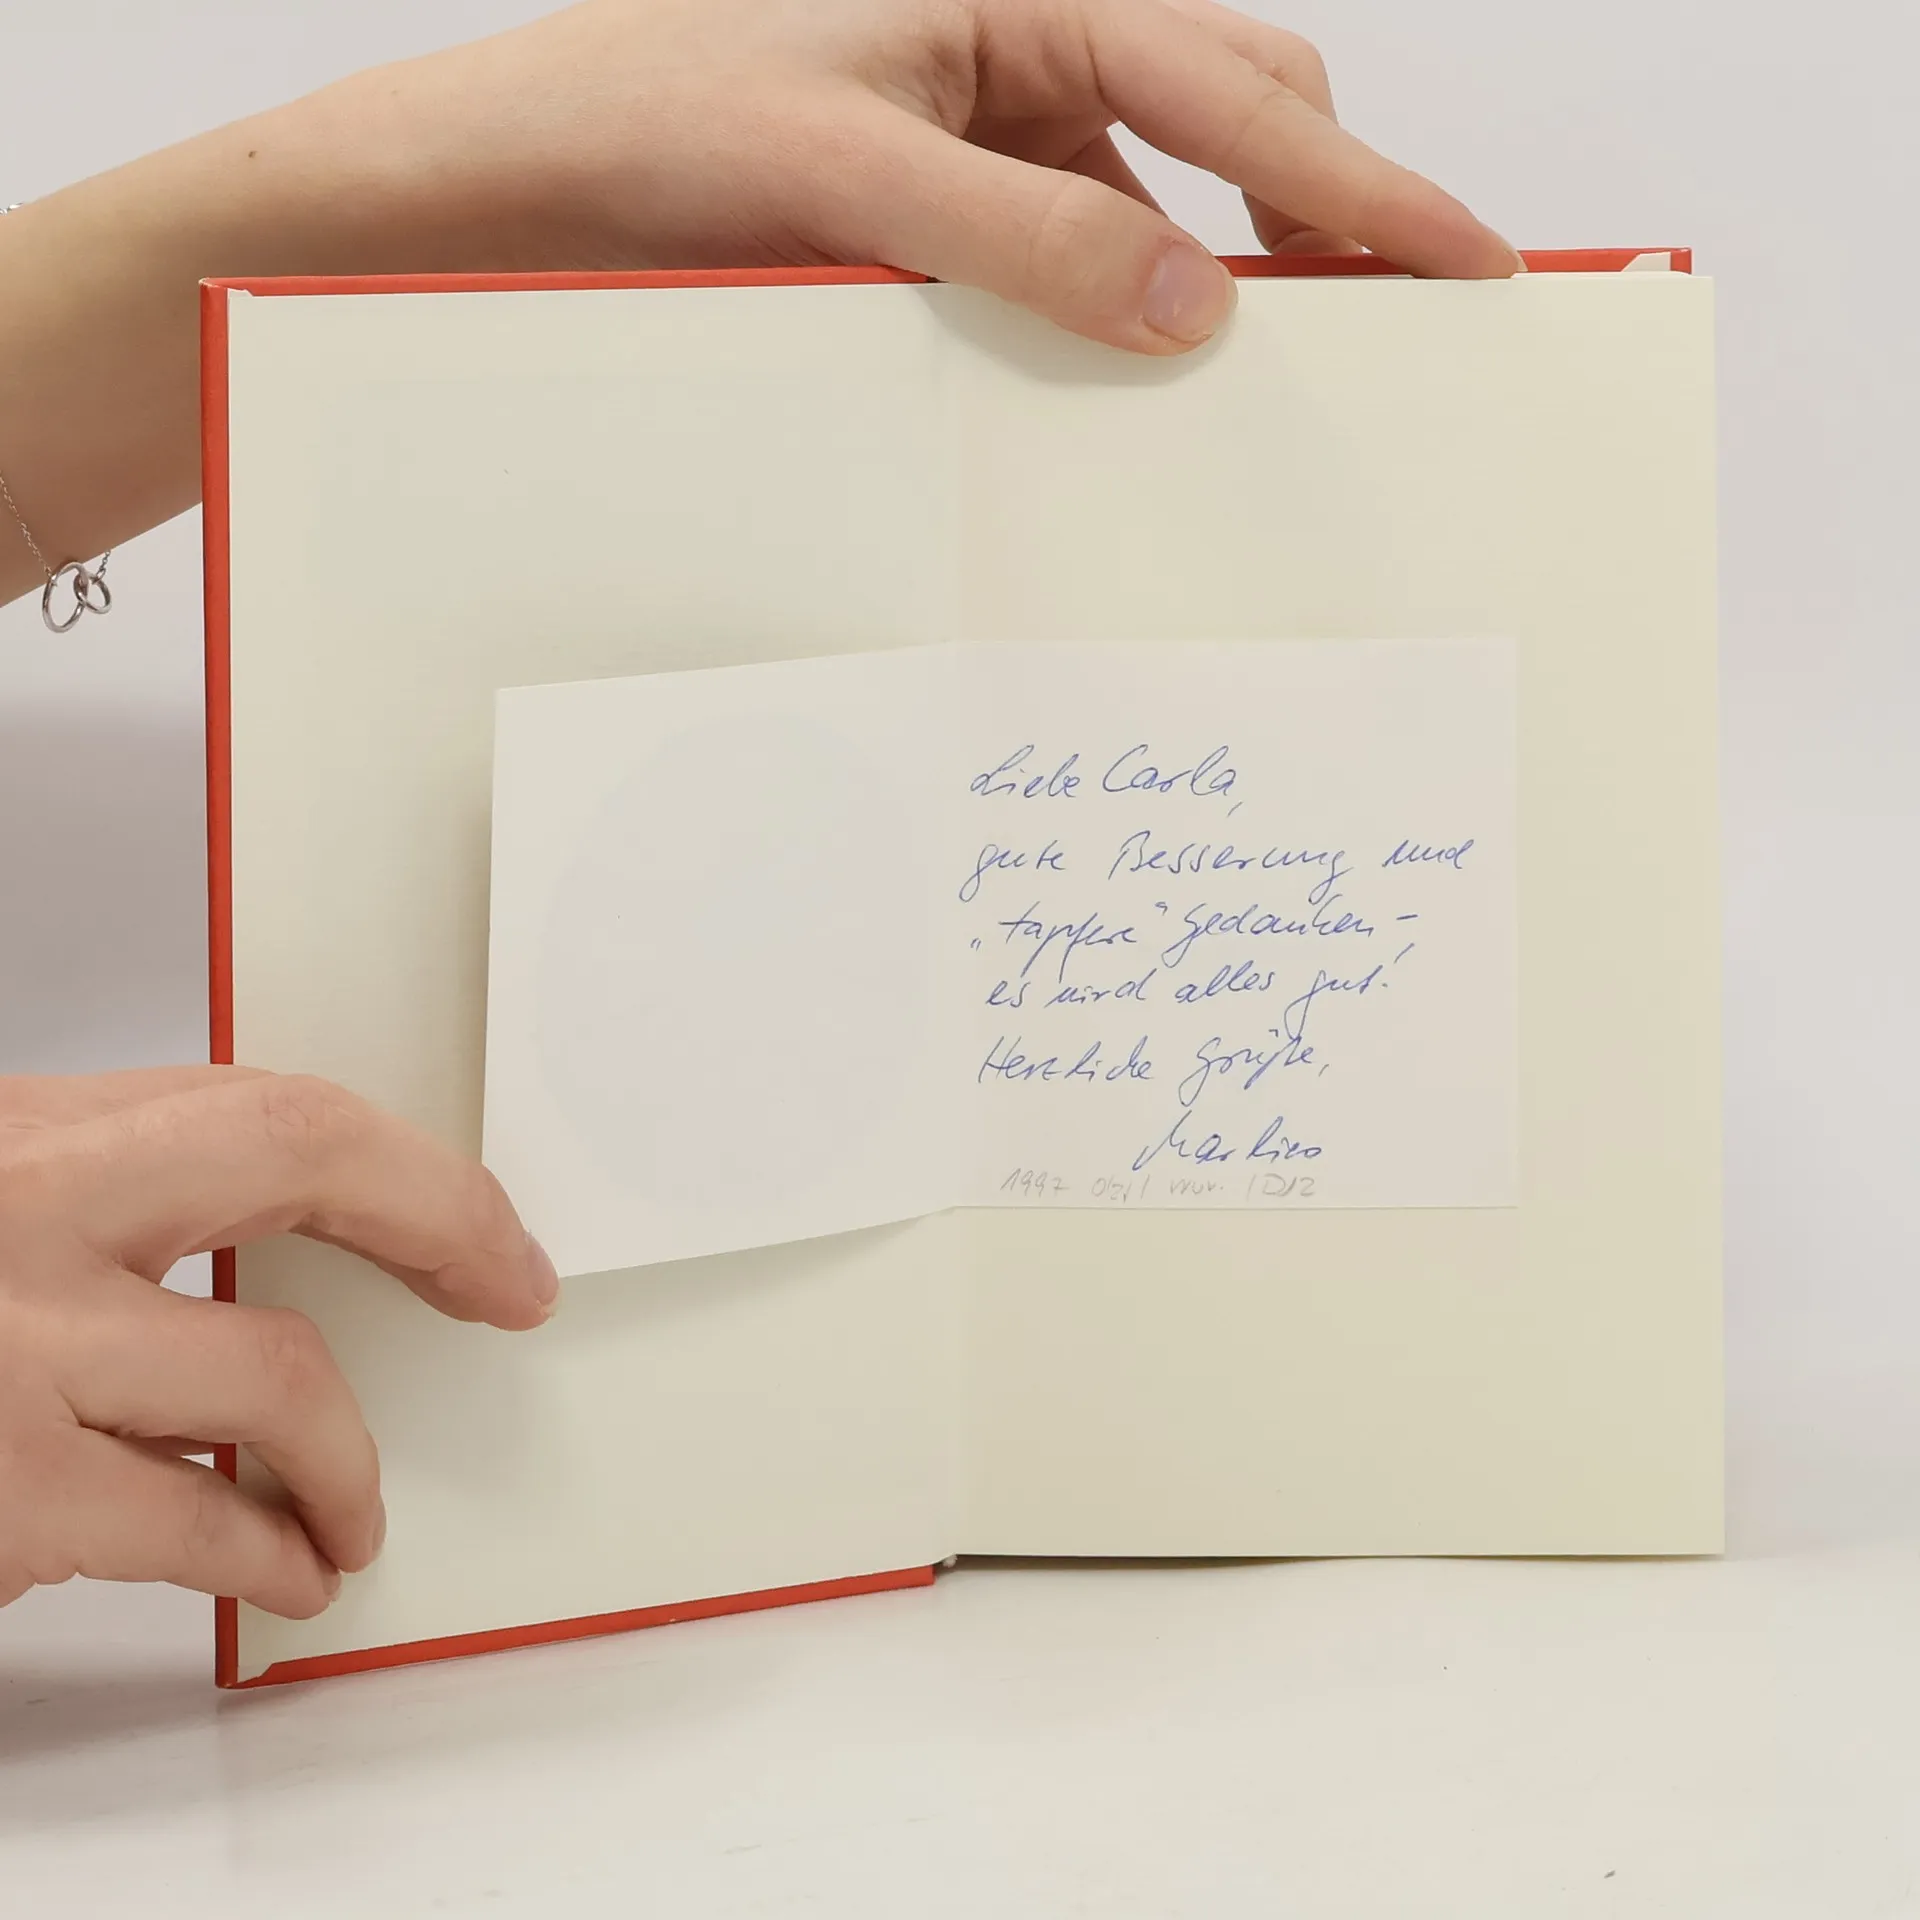 Liebe Carla,
gute Besserung und
„tapfere“ Gedanken –
es wird alles gut!
Herzliche Grüße,
1997